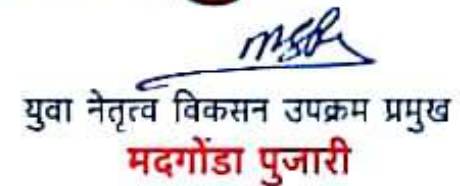 युवा नेतृत्व विकसन उपक्रम प्रमुख
मदगोंडा पुजारी